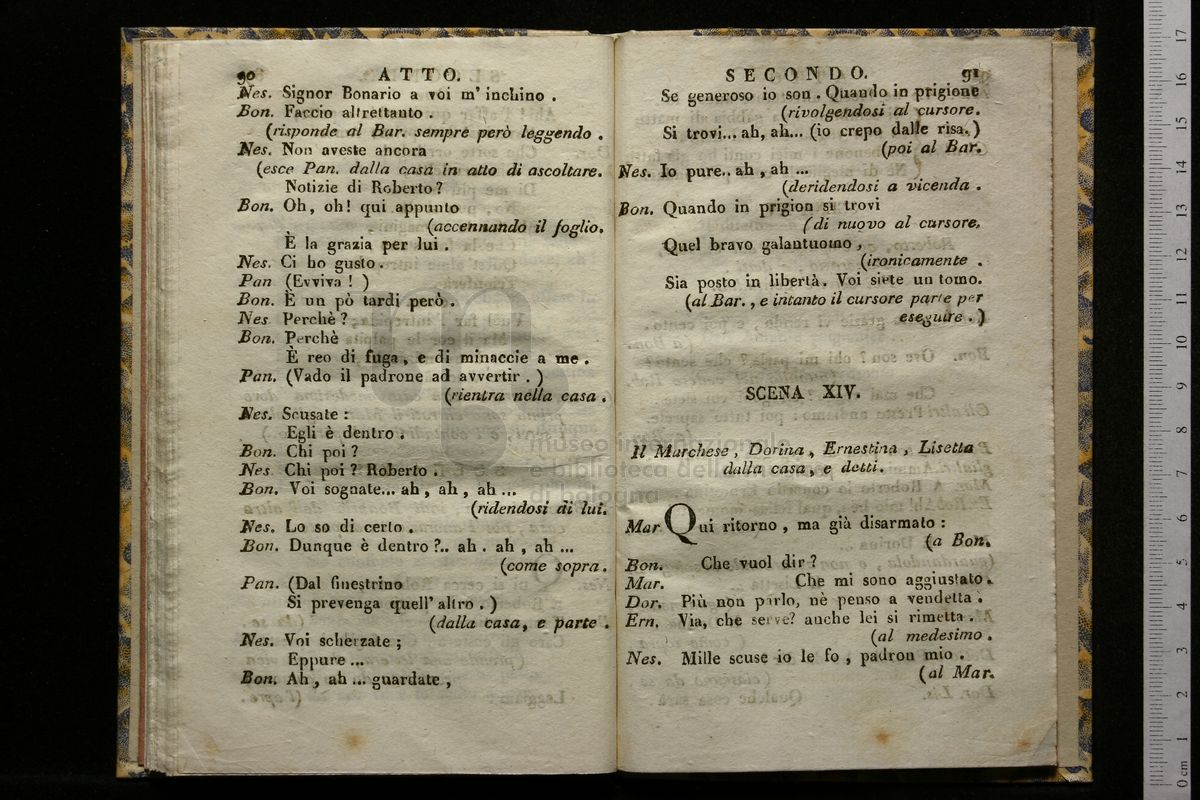 90 ATTO.
Nes. Signor Bonario a voi m' inchino .
Bon. Faccio altrettanto .
(risponde al Bar. sempre però leggendo .
Nes. Non aveste ancora
(esce Pan. dalla casa in atto di ascoltare.
Notizie di Roberto?
Bon. Oh, oh! qui appunto
(accennando il foglio.
È la grazia per lui .
Nes. Ci ho gusto .
Pan (Evviva ! )
Bon. È un pò tardi però .
Nes Perchè ?
Bon. Perchè
È reo di fuga , e di minaccie a me .
Pan. (Vado il padrone ad avvertir . )
(rientra nella casa .
Nes. Scusate :
Egli è dentro .
Bon. Chi poi ?
Nes Chi poi ? Roberto .
Bon. Voi sognate... ah , ah , ah ...
(ridendosi di lui.
Nes. Lo so di certo .
Bon. Dunque è dentro ?.. ah . ah , ah ...
(come sopra.
Pan. (Dal finestrino
Si prevenga quell' altro . )
(dalla casa, e parte .
Nes. Voi scherzate ;
Eppure ...
Bon. Ah , ah ... guardate ,
SECONDO. 91
Se generoso io son . Quando in prigione
(rivolgendosi al cursore.
Si trovi... ah, ah... (io crepo dalle risa. )
(poi al Bar.
Nes. Io pure.. ah , ah ...
(deridendosi a vicenda .
Bon. Quando in prigion si trovi
(di nuovo al cursore.
Quel bravo galantuomo ,
(ironicamente .
Sia posto in libertà. Voi siete un tomo.
(al Bar. , e intanto il cursore parte per
eseguire . )
SCENA XIV.
Il Marchese , Dorina , Ernestina , Lisetta
dalla casa , e detti .
Mar. Qui ritorno , ma già disarmato :
(a Bon.
Bon. Che vuol dir ?
Mar. Che mi sono aggiustato .
Dor. Più non parlo, nè penso a vendetta .
Ern. Via, che serve? anche lei si rimetta .
(al medesimo .
Nes. Mille scuse io le fo , padron mio .
(al Mar.
museo internazionale
e biblioteca della
di bologna
17
16
15
14
13
12
11
10
9
8
7
6
5
4
3
2
1
0 cm